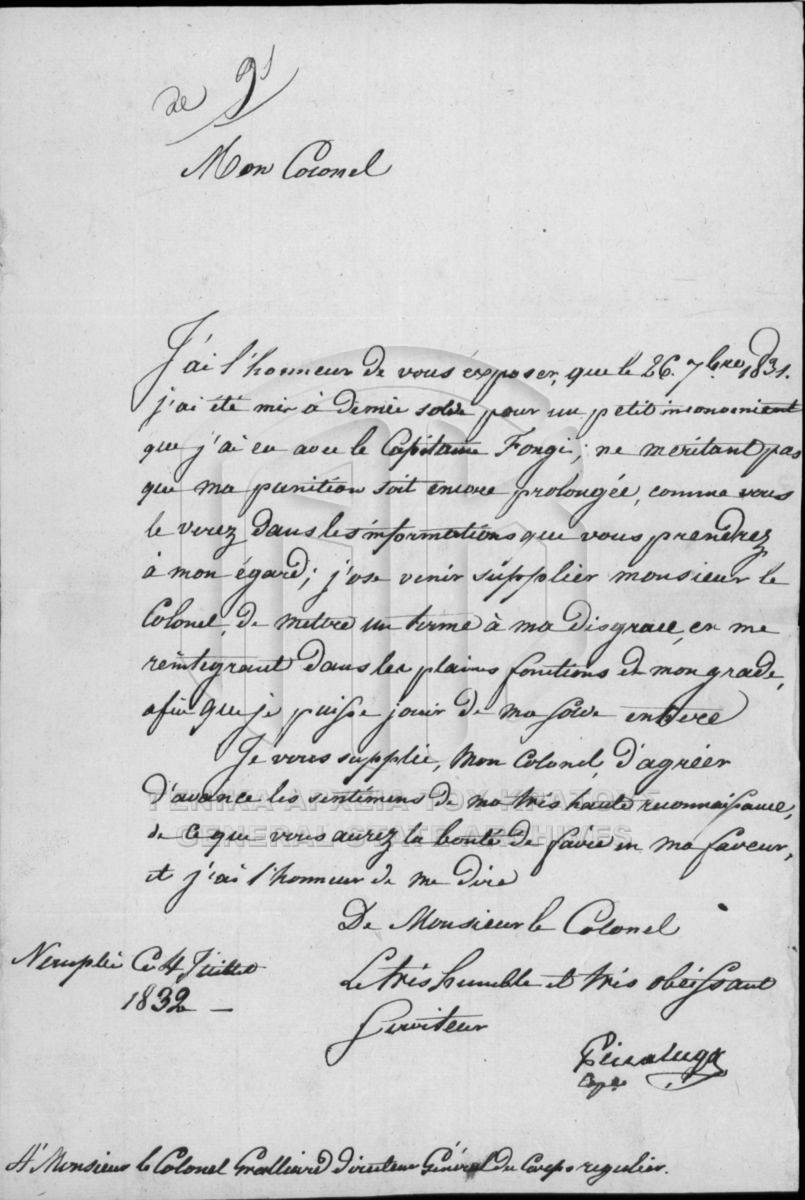 de
Mon Colonel
J'ai l'honneur de vous exposer, que le 26. 7bre 1831.
j'ai été mis à demie solde pour un petit inconvenient
que j'ai eu avec le Capitaine Fongi; ne meritant pas
que ma punition soit encore prolongée, comme vous
le verez dans les informations que vous prendrez
à mon égard; j'ose venir supplier monsieur le
Colonel, de mettre un terme à ma disgrace, en me
reintegrant dans les plaines fonctions de mon grade,
afin que je puisse jouir de ma solde entiere
Je vous supplie, Mon Colonel, d'agréer
d'avance les sentimens de ma très haute reconnaissance,
de ce que vous aurez la bonté de faire en ma faveur,
et j'ai l'honneur de me dire
De Monsieur le Colonel
Nauplie Ce 4 Juillet
1832 —
Le très humble et très obéissant
Serviteur
A Monsieur le Colonel Gralliard directeur Général du Corps regulier.
ΓΕΝΙΚΑ ΑΡΧΕΙΑ ΤΟΥ ΚΡΑΤΟΥΣ
GENERAL STATE ARCHIVES